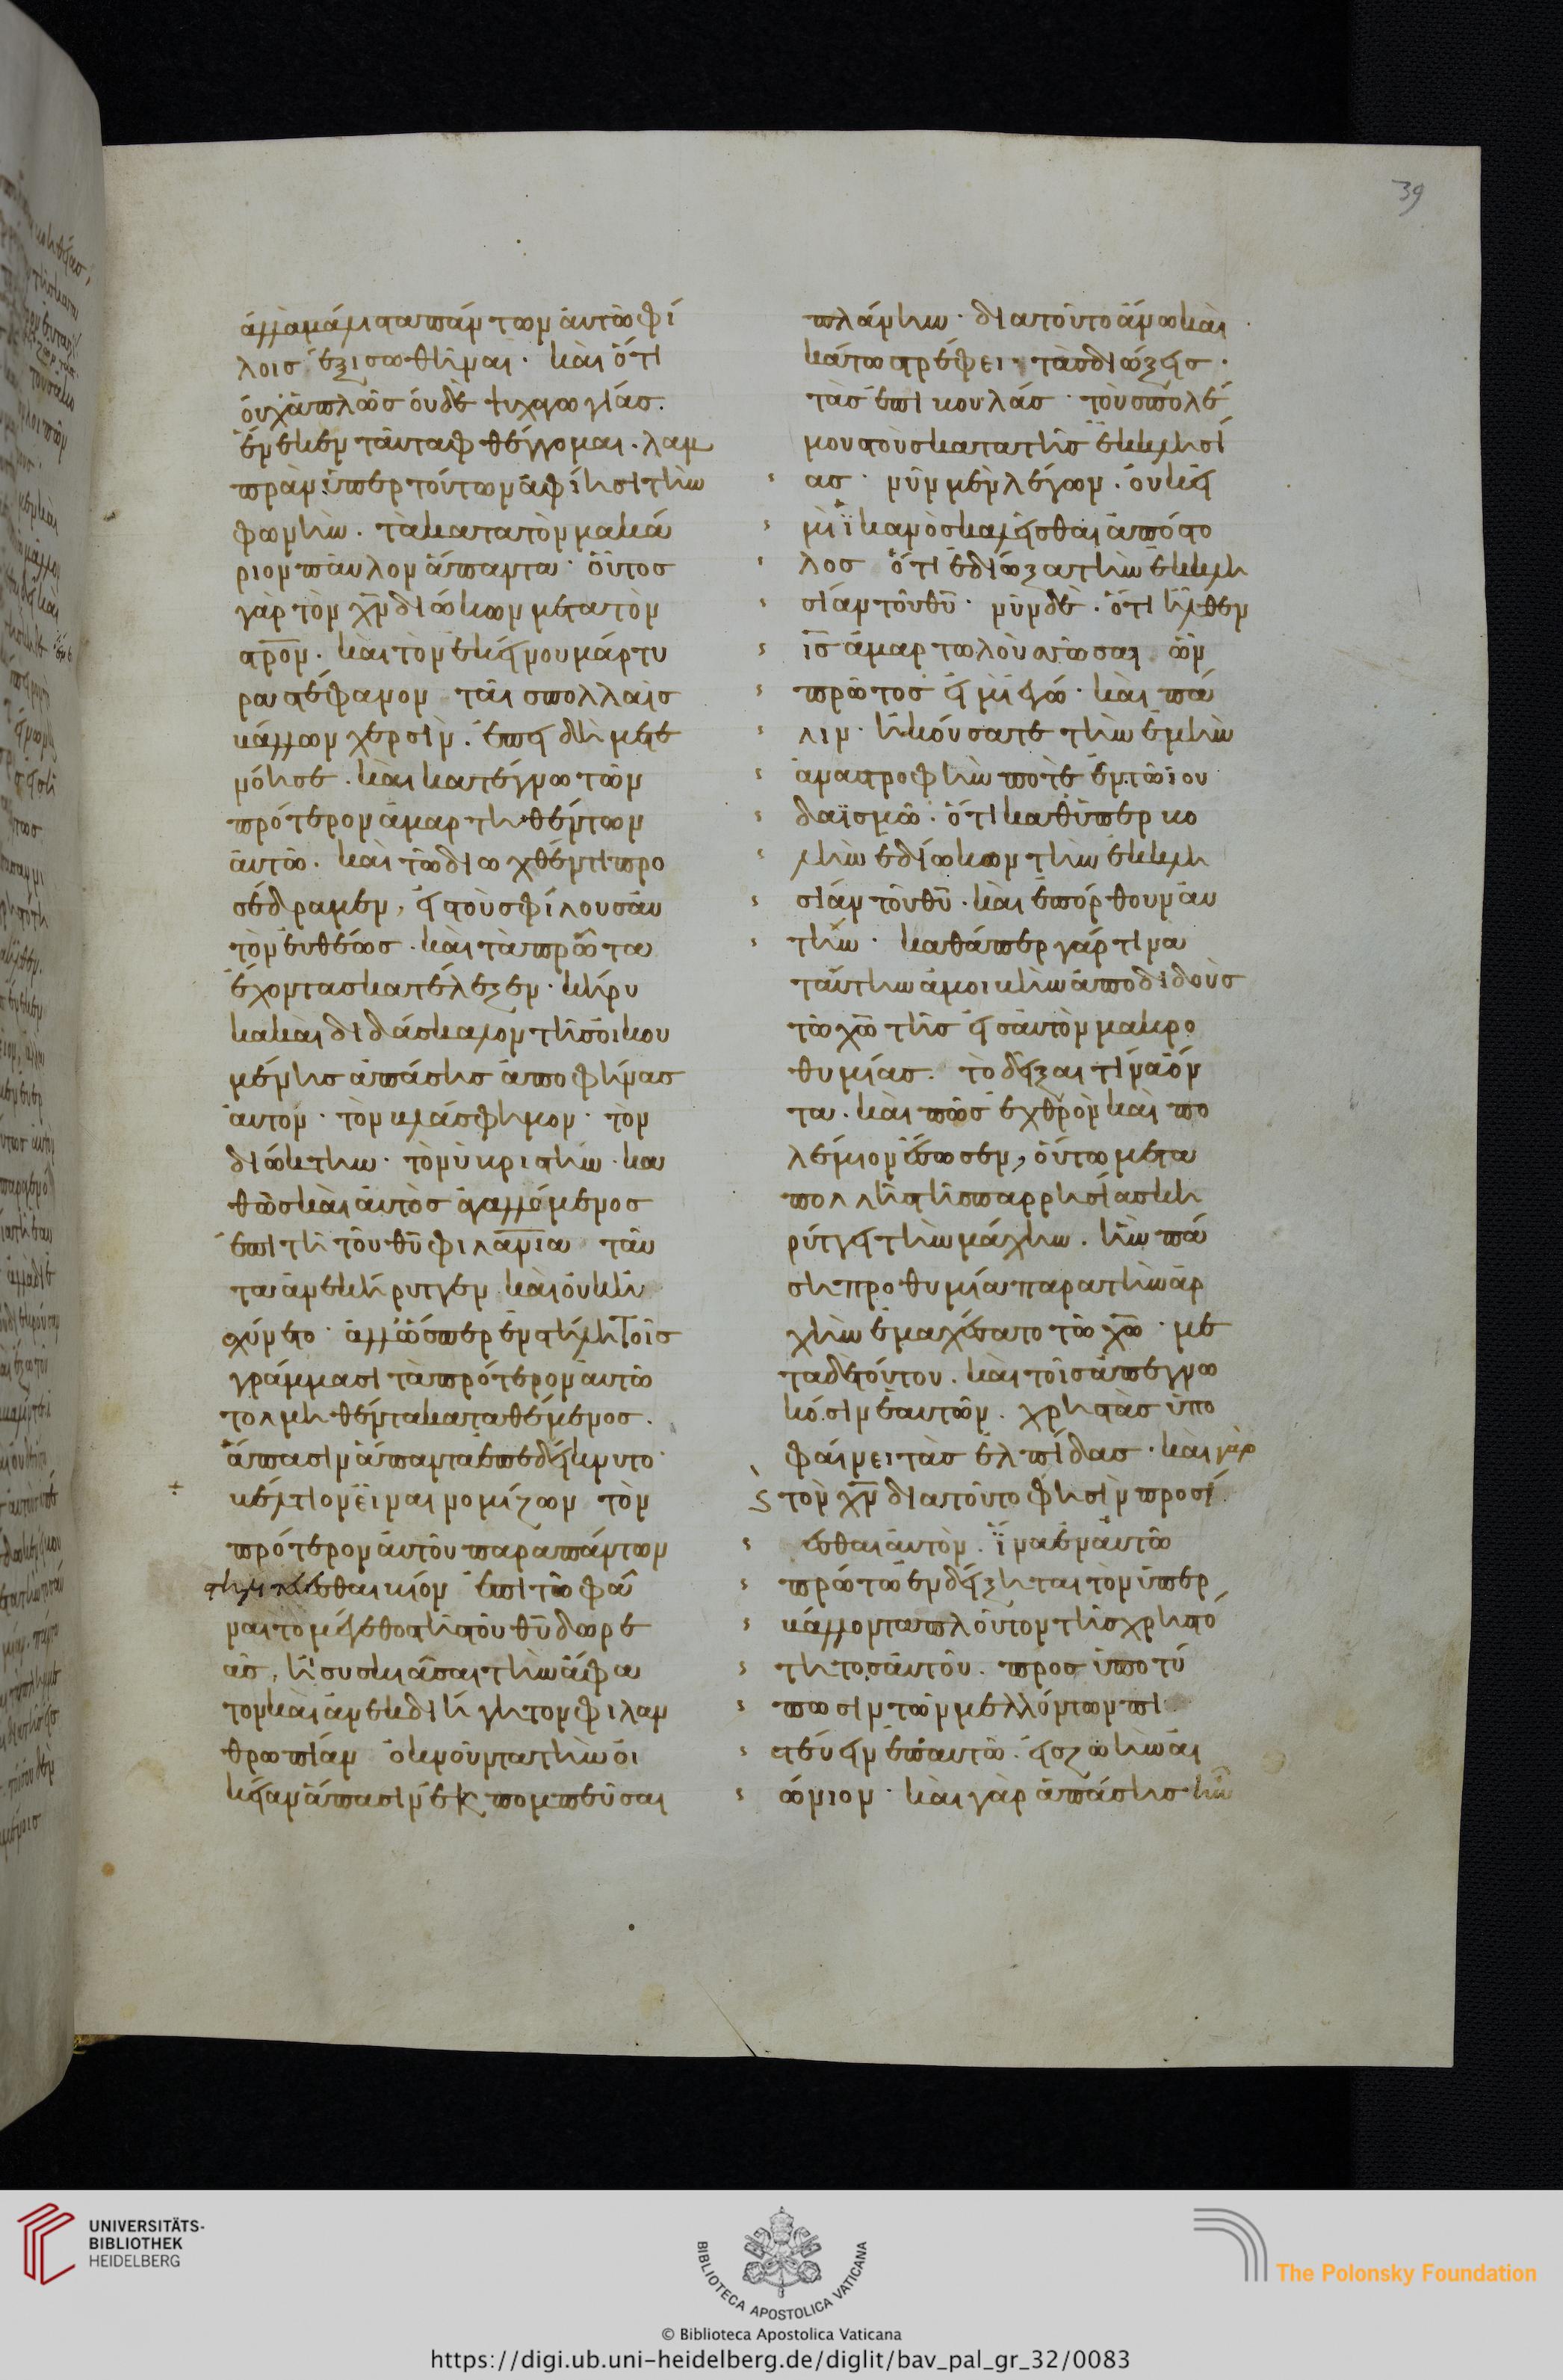 39
ἀλλὰ μάλιστα πάντων αὐτῶ φί
λοις ἐξισωθῆναι· καὶ ὅτι
οὐχ ἁπλῶς οὐδὲ ψυχαγωγίας·
ἕνεκεν ταῦτα φθέγγομαι· λαμ
πρὰν ὑπὲρ τούτων ἀφίησι τὴν
φωνὴν· τὰ κατὰ τὸν μακά
ριον παῦλον ἅπαντα· οὗτος
γὰρ τὸν χ̅ν̅ διώκων μετὰ τὸν
σ̅τ̅ρ̅ον· καὶ τὸν ἐκείνου μάρτυ
ρα στέφανον ταῖς πολλαῖς
βάλλων χερσὶν· ἐπειδὴ μετε
νόησε· καὶ κατέγνω τῶν
πρότερον ἁμαρτηθέντων
αὐτῶ· καὶ τῶ διωχθέντι προ
σέδραμεν, εἰς τοὺς φίλους αὐ
τὸν εὐθέως· καὶ τὰ πρῶτα
ἔχοντας κατέλεξεν· κήρυ
κα καὶ διδάσκαλον τῆς οἰκου
μένης ἁπάσης ἀποφήνας
αὐτὸν· τὸν βλάσφημον· τὸν
διώκτην· τὸν ὑβριστὴν· κα
θὼς καὶ αὐτὸς ἀγαλλόμενος
ἐπὶ τῆ τοῦ θ̅υ̅ φιλα̅ν̅ι̅α ταῦ
τα ἀνεκήρυττεν καὶ οὐκ ἠ
σχύνετο· ἀλλ' ὥσπερ ἐν στήλη τοῖς
γράμμασι τὰ πρότερον αὐτῶ
τολμηθέντα καταθέμενος·
ἅπασιν ἅπαντα ἐπεδείκνυτο·
βέλτιον εἶναι νομίζων τὸν
πρότερον αὐτοῦ παρὰ πάντων
στηλιτεύεσθαι βίον ἐπὶ τῶ φα
ναι τὸ μέγεθος τῆς τοῦ θ̅υ̅ δωρε
ᾶς, ἢ συσκιάσαι τὴν ἄφα
τον καὶ ἀνεκδιήγητον φιλαν
θρωπίαν ὀκνοῦντα τὴν οἰ
κείαν ἅπασιν ἐκπομπεῦσαι
πλάνην· διατοῦτο ἄνω καὶ
κάτω στρέφει· τὰς διώξεις·
τὰς ἐπιβουλάς· τοὺς πολέ
μους τοὺς κατὰ τῆς ἐκκλησί
ας· νῦν μὲν λέγων· οὐκ εἰ
μὶ ἱκανὸς καλεῖσθαι ἀπόστο
λος ὅτι ἐδίωξα τὴν ἐκκλη
σίαν τοῦ θ̅υ̅· νῦν δὲ· ὅτι ἦλθεν
ι̅ς̅ ἁμαρτωλοὺς σῶσαι ὧν
πρῶτος εἰμὶ ἐγώ· καὶ πά
λιν· ἠκούσατε τὴν ἐμὴν
ἀναστροφὴν ποτὲ ἐν τῶ ἰου
δαϊσμῶ· ὅτι καθ' ὑπερβο
λὴν ἐδίωκων τὴν ἐκκλη
σίαν τοῦ θ̅υ̅· καὶ ἐπόρθουν αὐ
τήν· καθάπερ γάρ τινα
ταύτην ἀμοιβὴν ἀποδιδοὺς
τῶ χ̅ω̅ τῆς εἰς αὐτὸν μακρο
θυμίας· τὸ δεῖξαι τίνα ὄν
τα· καὶ πῶς ἐχθρὸν καὶ πο
λέμιον ἔσωσεν, οὕτω μετὰ
πολλῆς τῆς παρρησίας κη
ρύττει τὴν μάχην· ἣν πά
ση προθυμία παρὰ τὴν ἀρ
χὴν ἐμαχέσατο τῶ χ̅ω̅· με
τὰ δὲ τούτου· καὶ τοῖς ἀπεγνω
κόσιν ἑαυτῶν· χρηστὰς ὑπο
φαίνει τὰς ἐλπίδας· καὶ γὰρ
τὸν χ̅ν̅ διατοῦτο φησὶν προσί
εσθαι αὐτὸν· ἵνα ἐν αὐτῶ
πρώτω ἐνδείξηται τὸν ὑπερ
βάλλοντα πλοῦτον τῆς χρηστό
τητος αὐτοῦ· προς ὑποτύ
πωσιν τῶν μελλόντων πι
στεύειν ἐπ' αὐτῶ· εἰς ζωὴν αἰ
ώνιον· καὶ γὰρ ἁπάσης ἦν
UNIVERSITÄTS-
BIBLIOTHEK
HEIDELBERG
BIBLIOTECA APOSTOLICA VATICANA
The Polonsky Foundation
© Biblioteca Apostolica Vaticana
https://digi.ub.uni-heidelberg.de/diglit/bav_pal_gr_32/0083